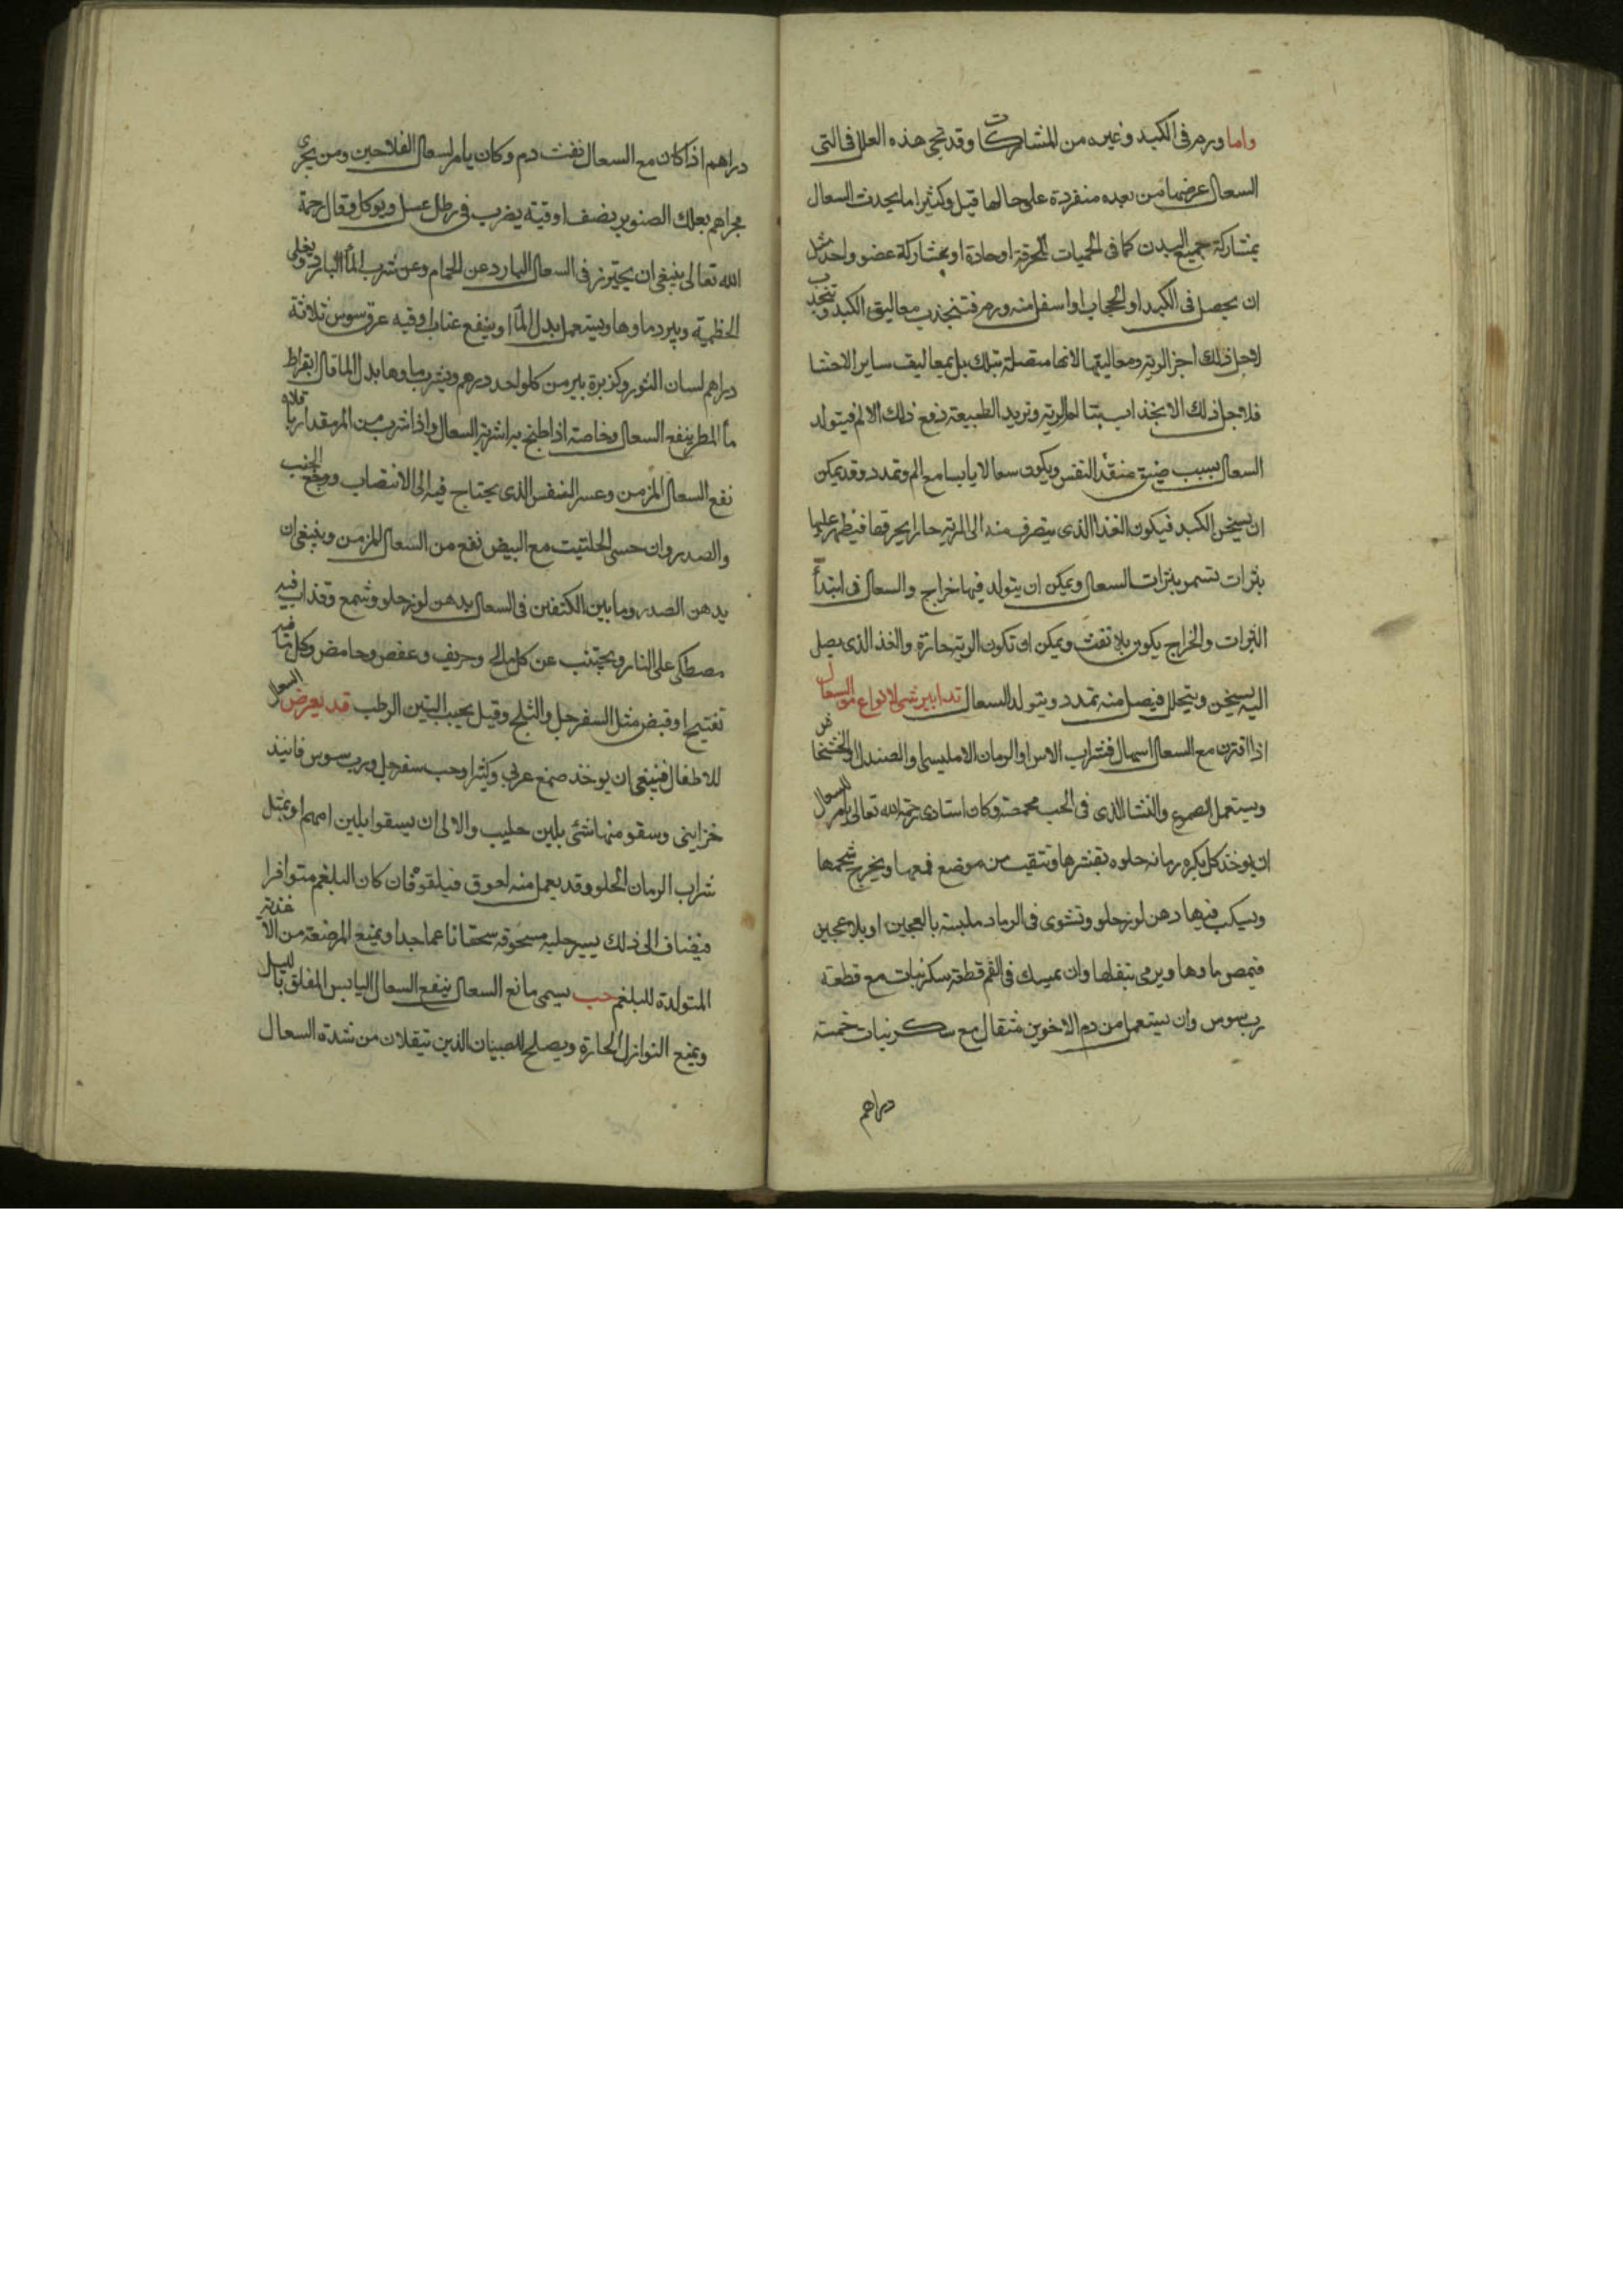 واما ورم فى الكبد وغيره من المشاركات وقد تجى هذه العلل فى التى
السعال عرضها من بعده منفردة على حالها قيل وكثيرا ما يحدث السعال
بمشاركة جميع البدن كما فى الحميات المحرقة او حادة او بمشاركة عضو واحد مثل
ان يحصل فى الكبد او الحجاب او اسفل منه ورم فتنجذب معاليق الكبد وتنجذب
لاجل ذلك اجز الريه ومعاليقها لانها متصلة بتلك بل بمعاليق ساير الاحشا
فلاجل ذلك الانجذاب تتالم الريه وتريد الطبيعة دفع ذلك الالم فيتولد
السعال بسبب ضيق منفذ النفس ويكون سعالا يابسا مع الم وتمدد وقد يمكن
ان يسخن الكبد فيكون الغذا الذى ينصرف منه الى الريه حارا يحرقها فيظهر عليها
بثرات تسمى بثرات السعال ويمكن ان يتولد فيها خراج والسعال فى ابتدأ
البثرات والخراج يكون بلا نفث ويمكن ان تكون الريه حارة والغذ الذى يصل
اليه يسخن ويتحلل فيصل منه تمدد ويتولد السعال تدابير شى لانواع من السعال
اذا اقترن مع السعال اسهال فشراب الاس او الرمان الامليسى والصندل والخشخاش
ويستعمل الصمغ والنشا الذى فى الحب محمصة وكان استادى رحمة الله تعالى يامر للسعال
ان يوخذ كل بكره رمانه حلوه بقشرها وتنقب من موضع قمعها ويخرج شحمها
ويسكب فيها دهن لوز حلو وتشوى فى الرماد ملبسة بالعجين او بلا عجين
فيمص ماوها ويرمى بثفلها وان يمسك فى الفم قطعة سكر نبات مع قطعة
رب سوس وان يستعمل من دم الاخوين مثقال مع سكر نبات خمسة
دراهم
دراهم اذا كان مع السعال نفث دم وكان يامر لسعال الفلاحين ومن يجرى
مجراهم بعلك الصنوبر نصف اوقية يضرب فى رطل عسل ويوكل وقال رحمة
الله تعالى ينبغى ان يحترز فى السعال البارد عن الحمام وعن شرب المأ البارد ويغلى
الخطمية ويبرد ماوها ويستعمل بدل المأ او ينفع عناب اوقيه عرق سوس ثلاثة
دراهم لسان الثور وكزبرة بير من كل واحد درهم ويشرب ماوها بدل الما قال ابقراط
مأ المطر ينفع السعال وخاصة اذا طبخ به اشربة السعال واذا شرب من المر مقدار باقلاه
نفع السعال المزمن وعسر النفس الذى يحتاج فيه الى الانتصاب ووجع الجنب
والصدر وان حسى الحلتيت مع البيض نفع من السعال المزمن وينبغى ان
يدهن الصدر وما بين الكتفين فى السعال بدهن لوز حلو وشمع وقذاب فيه
مصطكى على النار ويجتنب عن كل مالح وحريف وعفص وحامض وكل ما فيه
تفتيح او قبض مثل السفرجل والثلج وقيل يجيب التين الرطب قد يعرض السعال
للاطفال فينبغى ان يوخذ صمغ عربى وكثيرا وحب سفرجل ورب سوس فانيذ
خزاينى وسقو منها شئ بلبن حليب والالى ان يسقوا بلبن امهم او بمثل
شراب الرمان الحلو وقد يعمل منه لعوق فيلقوق فان كان البلغم متوافرا
فيضاف الى ذلك يسير حلبه مسحوقه سحقا ناعما جدا ويمنع المرضعة من الاغذية
المتولدة للبلغم حب يسمى مانع السعال ينفع السعال اليابس المقلق بالليل
ويمنع النوازل الحارة ويصلح للصبيان الذين يتقلان من شدة السعال